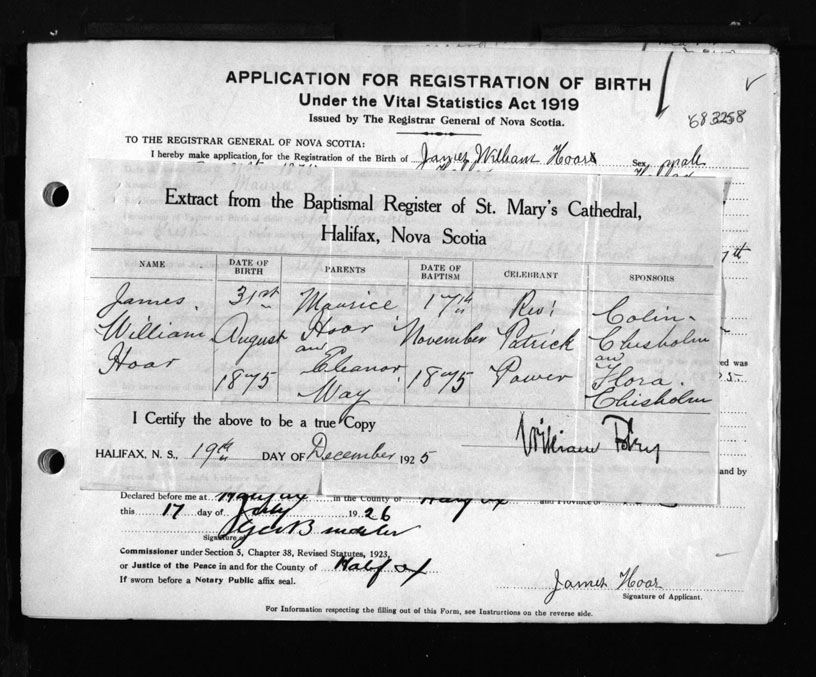 APPLICATION FOR REGISTRATION OF BIRTH
Under the Vital Statistics Act 1919
Issued by The Registrar General of Nova Scotia.
683258
TO THE REGISTRAR GENERAL OF NOVA SCOTIA:
I hereby make application for the Registration of the Birth of James William Hoar Sex male
Extract from the Baptismal Register of St. Mary's Cathedral,
Halifax, Nova Scotia
NAME DATE OF BIRTH PARENTS DATE OF BAPTISM CELEBRANT SPONSORS
James 31st Maurice 17th Rev. Colin
William August Hoar November Patrick Chisholm
Hoar 1875 and Eleanor Way 1875 Power and Flora Chisholm
I Certify the above to be a true Copy
William
HALIFAX, N. S., 19th DAY OF December 1925
and by
Declared before me at Halifax in the County of Halifax and Province of
this 17 day of July 1926
Signature of
Commissioner under Section 5, Chapter 38, Revised Statutes, 1923,
or Justice of the Peace in and for the County of Halifax
If sworn before a Notary Public affix seal.
James Hoar
Signature of Applicant.
For Information respecting the filling out of this Form, see Instructions on the reverse side.